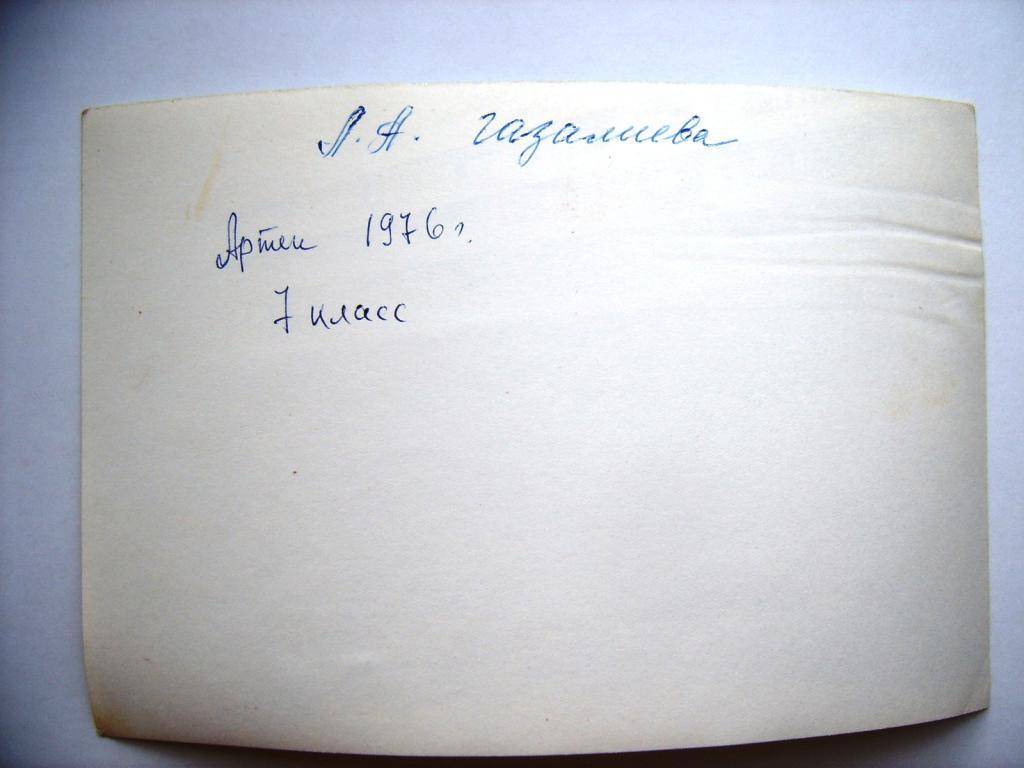 Л. А. Газалиева
Артек 1976 г.
7 класс